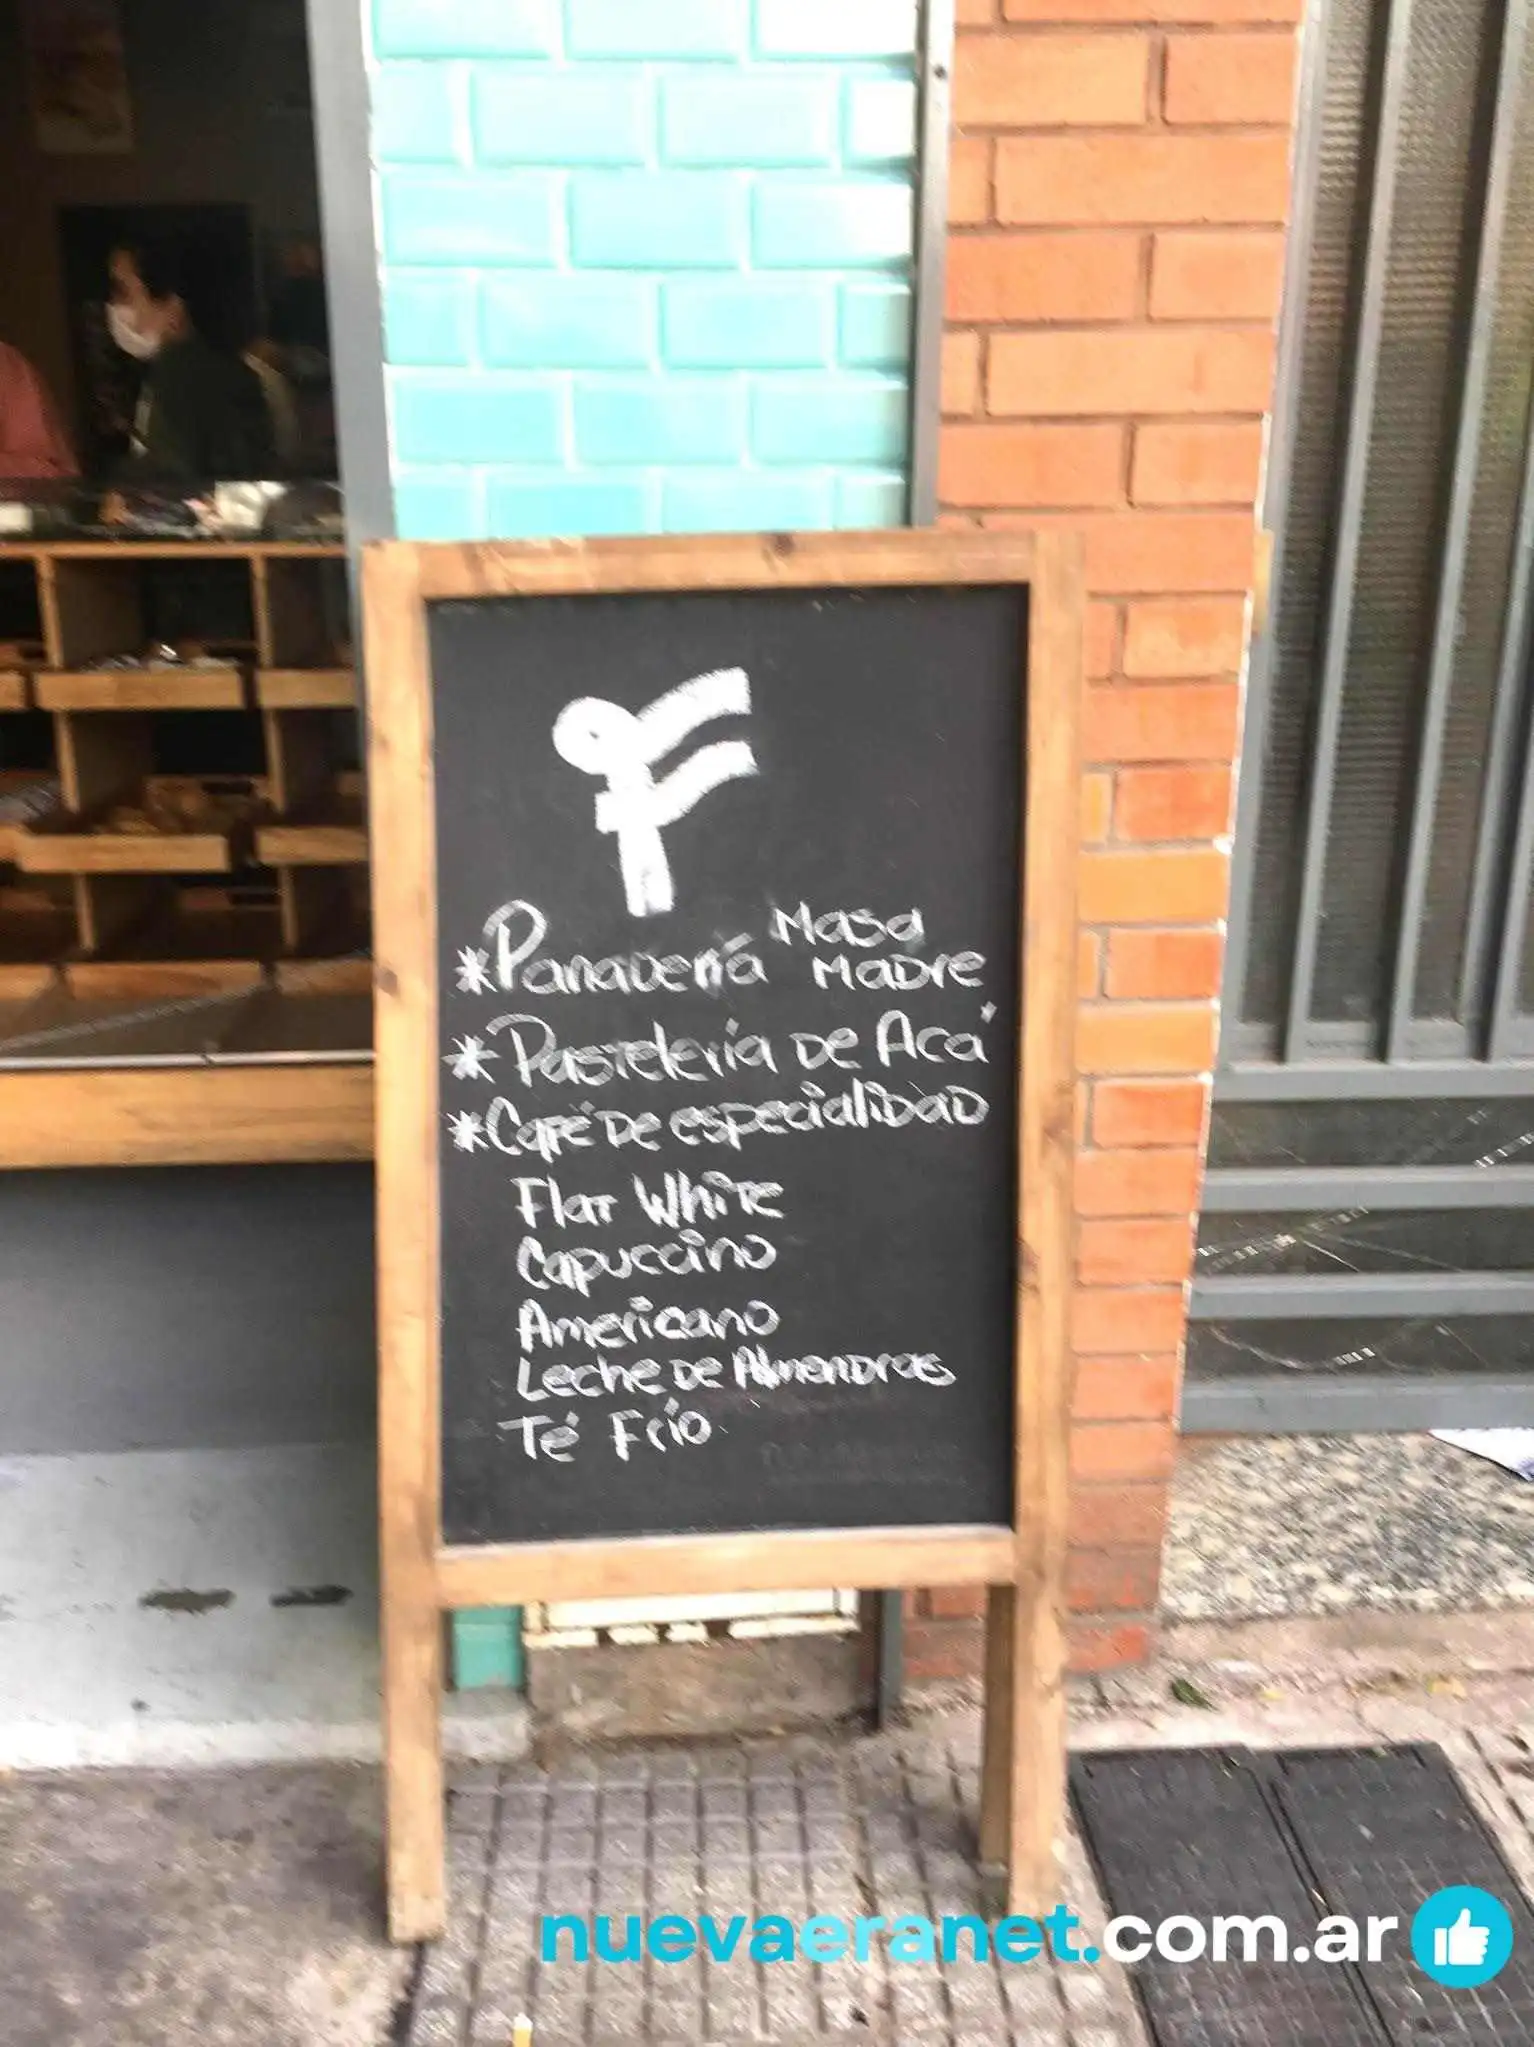 *Panadería Masa Madre
*Pastelería de Acá
*Café de especialidad
Flat White
Capuccino
Americano
Leche de Almendras
Té Frío
nuevaeranet.com.ar